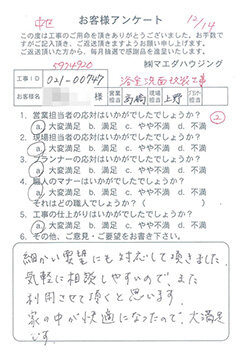 お客様アンケート
12/14
この度は工事のご用命を頂きありがとうございました。お手数で
すがご記入頂き、ご返送頂きますようお願い申し上げます。
ご返送頂いた方から、毎月抽選で感謝品を進呈しております。
5924920
㈱マエダハウジング
工事ID
021-00747
浴室洗面改装工事
お客様名
様
営業担当
高橋
現場担当
上野
1. 営業担当者の応対はいかがでしたでしょうか?
②
a. 大変満足 b. 満足 c. やや不満 d. 不満
2. 現場担当者の応対はいかがでしたでしょうか?
a. 大変満足 b. 満足 c. やや不満 d. 不満
3. プランナーの応対はいかがでしたでしょうか?
a. 大変満足 b. 満足 c. やや不満 d. 不満
4. 職人のマナーはいかがでしたでしょうか?
a. 大変満足 b. 満足 c. やや不満 d. 不満
それはどの職人でしょうか?( )
5. 工事の仕上がりはいかがでしたでしょうか?
a. 大変満足 b. 満足 c. やや不満 d. 不満
6. その他、ご意見・ご要望をお書き下さい。
細かい要望にも対応して頂きました。
気軽に相談しやすいので、また
利用させて頂くと思います。
家の中が快適になったので、大満足
です。